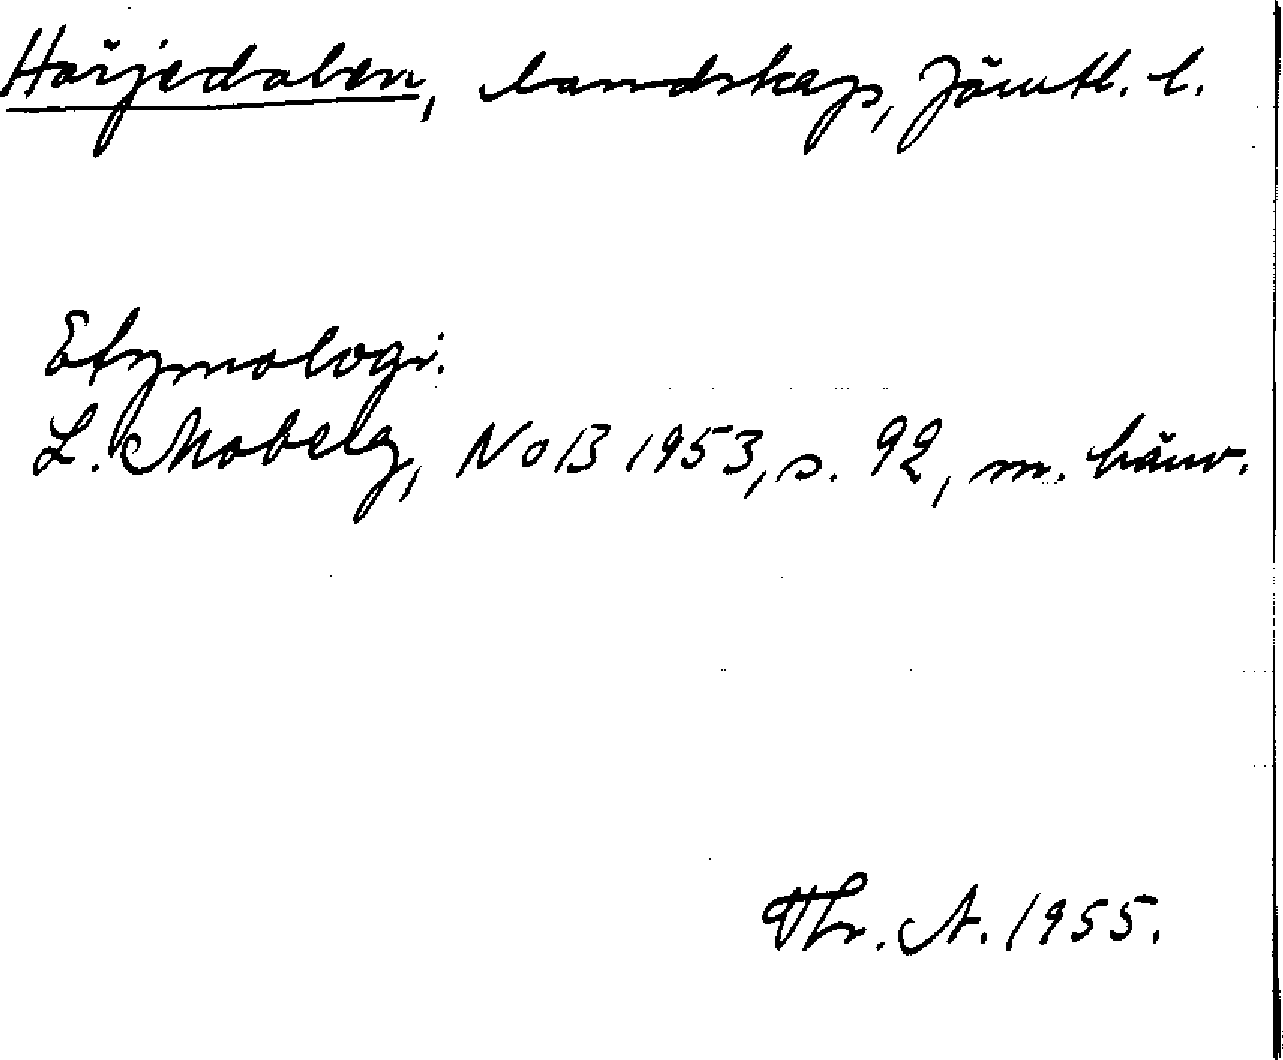 Härjedalen, landskap, Jämtl. l.
Etymologi.
L. Moberg, NoB 1953, s. 92, m. hänv.
Thr. A. 1955.